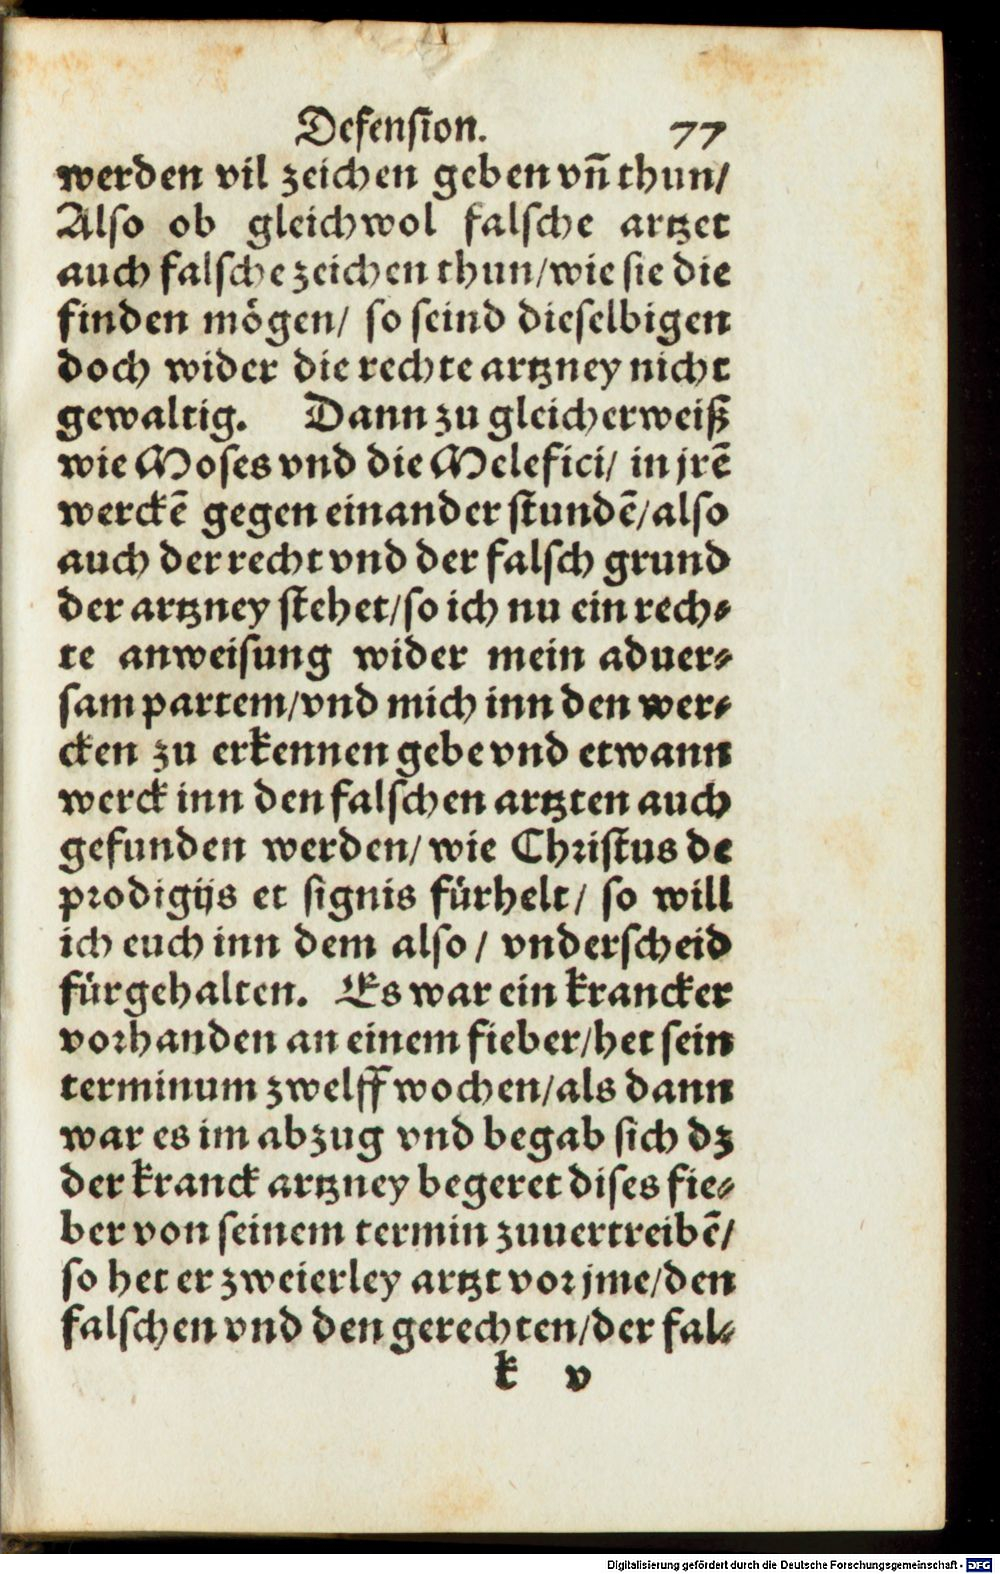 Defension. 77
werden vil zeichen geben vn̄ thun/
Also ob gleichwol falsche artzet
auch falsche zeichen thun/wie sie die
finden mögen/ so seind dieselbigen
doch wider die rechte artzney nicht
gewaltig. Dann zu gleicherweiß
wie Moses vnd die Melefici/ in jrē
werckē gegen einander stundē/also
auch der recht vnd der falsch grund
der artzney stehet/so ich nu ein rech⸗
te anweisung wider mein aduer⸗
sam partem/vnd mich inn den wer⸗
cken zu erkennen gebe vnd etwann
werck inn den falschen artzten auch
gefunden werden/ wie Christus de
prodigijs et signis fürhelt/ so will
ich euch inn dem also/ vnderscheid
fürgehalten. Es war ein krancker
vorhanden an einem fieber/het sein
terminum zwelff wochen/als dann
war es im abzug vnd begab sich dz
der kranck artzney begeret dises fie⸗
ber von seinem termin zuuertreibē/
so het er zweierley artzt vor jme/den
falschen vnd den gerechten/der fal⸗
k v
Digitalisierung gefördert durch die Deutsche Forschungsgemeinschaft - DFG